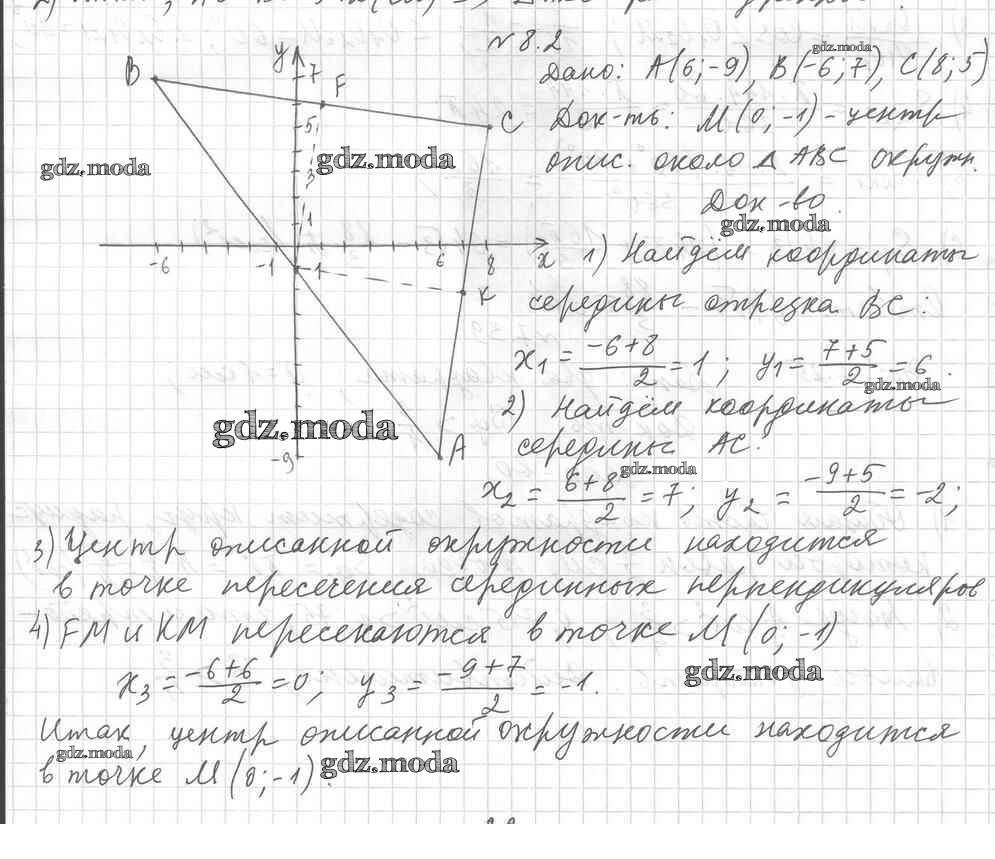 № 8.2
Дано: A(6;-9), B(-6;7), C(8;5)
Док-ть: M(0;-1) - центр
опис. около Δ ABC окружн.
Док-во
1) Найдём координаты
середины отрезка BC:
x₁ = (-6+8)/2 = 1; y₁ = (7+5)/2 = 6.
2) Найдём координаты
середины AC:
x₂ = (6+8)/2 = 7; y₂ = (-9+5)/2 = -2;
3) Центр описанной окружности находится
в точке пересечения серединных перпендикуляров
4) FM и KM пересекаются в точке M(0;-1)
x₃ = (-6+6)/2 = 0; y₃ = (-9+7)/2 = -1.
Итак, центр описанной окружности находится
в точке M(0;-1).
y
B
7
F
5
C
3
1
-6
-1
-1
6
8
x
K
-9
A
gdz.moda
gdz.moda
gdz.moda
gdz.moda
gdz.moda
gdz.moda
gdz.moda
gdz.moda
gdz.moda
gdz.moda